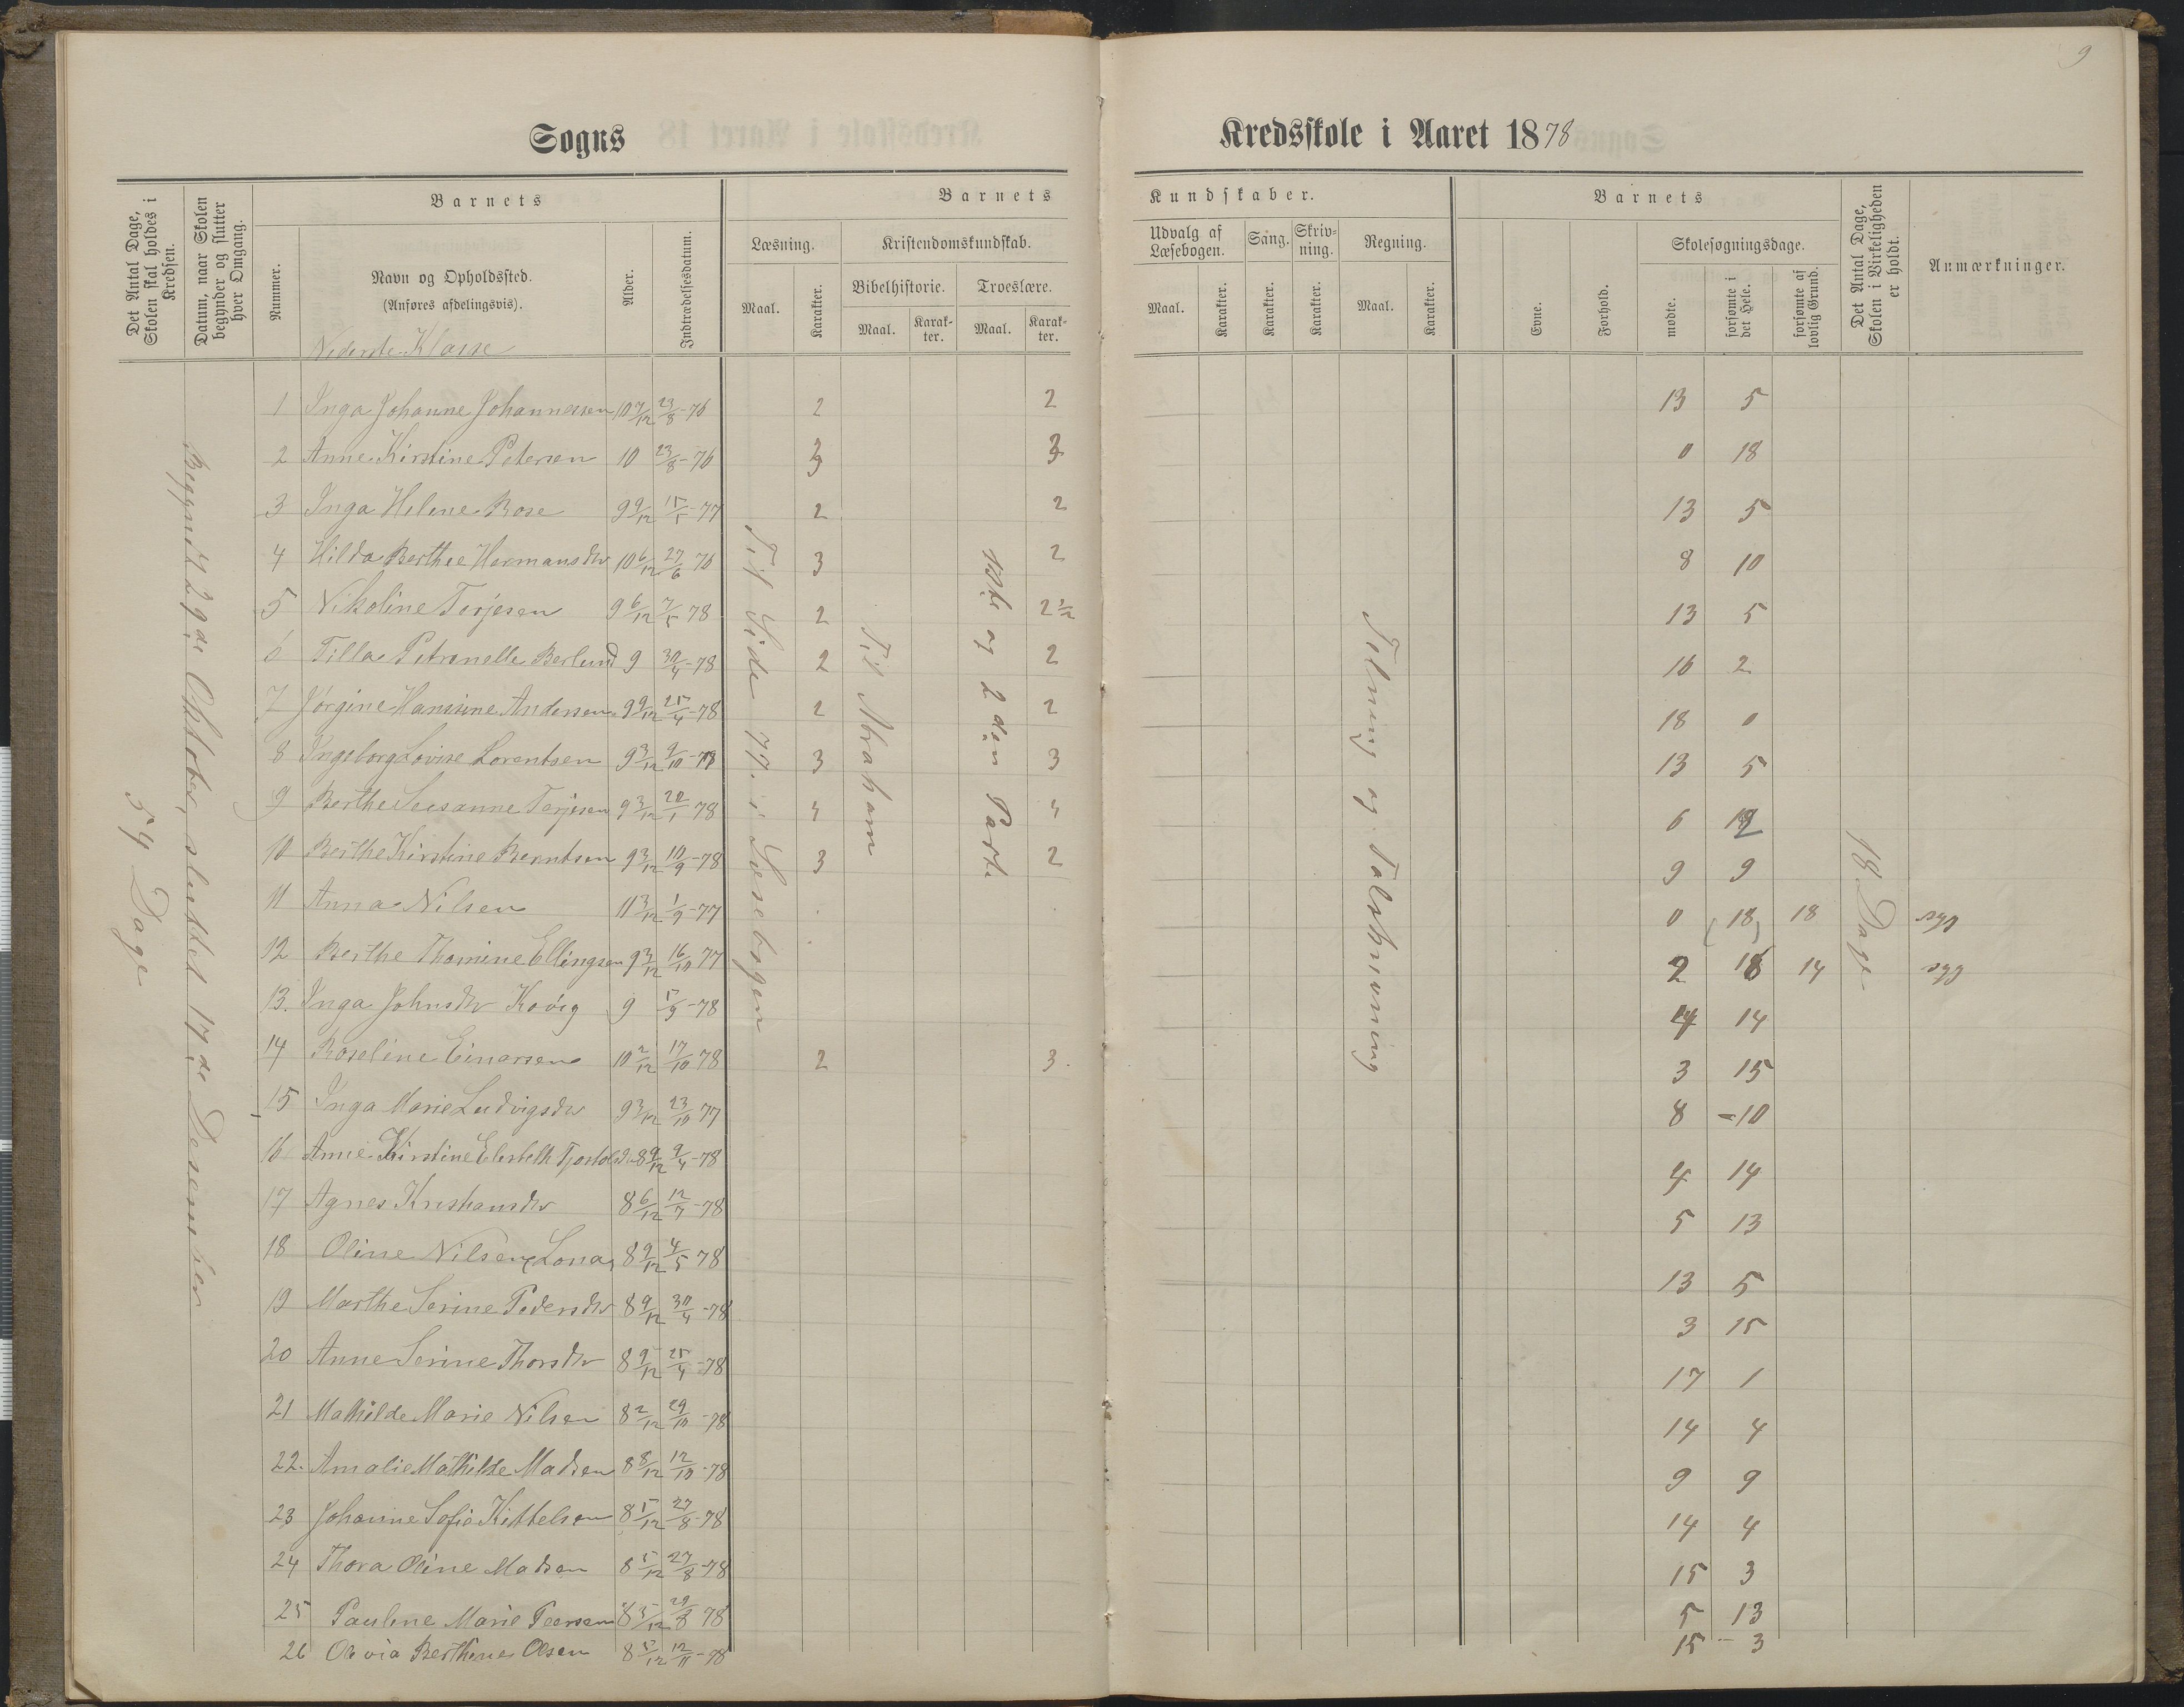 9
Sogns Kredsskole i Aaret 1878
Det Antal Dage, Skolen skal holdes i Kredsen.
Datum, naar Skolen begynder og slutter hver Omgang.
Barnets
Nummer.
Navn og Opholdssted.
(Anføres afdelingsvis).
Nederste Klasse
Alder.
Indtrædelsesdatum.
Barnets Kundskaber.
Læsning.
Maal.
Karakter.
Kristendomskundskab.
Bibelhistorie.
Maal.
Karakter.
Troeslære.
Maal.
Karakter.
Udvalg af Læsebogen.
Maal.
Karakter.
Sang.
Karakter.
Skrivning.
Karakter.
Regning.
Maal.
Karakter.
Barnets
Evne.
Forhold.
Skolesøgningsdage.
mødte.
forsømte i det Hele.
forsømte af lovlig Grund.
Det Antal Dage, Skolen i Virkeligheden er holdt.
Anmærkninger.
54 Dage
Begyndt 29de Oktober, sluttet 17de Desember
Til Side 77 i Læsebogen
Til Abraham
1ste og 2den Part
Telning og Talskrivning
18 Dage
1 Inga Johanne Johannessen 10 7/12 23/8-76 2 2 13 5
2 Anne Kirstine Petersen 10 23/8-76 3 3 0 18
3 Inga Helene Rose 9 9/12 15/5-77 2 2 13 5
4 Hilda Berthee Hermansdtr 10 6/12 27/6 76 3 2 8 10
5 Nikoline Terjesen 9 6/12 7/5 78 2 2 1/2 13 5
6 Tilla Petronelle Berlund 9 30/4-78 2 2 16 2
7 Jørgine Hansine Andersen 9 9/12 25/4-78 2 2 18 0
8 Ingeborg Lovise Lorentsen 9 3/12 9/10-78 3 3 13 5
9 Berthe Susanne Terjesen 9 3/12 20/1 78 4 4 6 12
10 Berthe Kirstine Berntsen 9 3/12 10/9-78 3 2 9 9
11 Anna Nilsen 11 3/12 1/9-77 0 18 18 syg
12 Berthe Thomine Ellingsen 9 3/12 16/10 77 2 16 14 syg
13. Inga Johnsdtr Kovig 9 5/9-78 4 14
14 Roseline Einarsen 10 2/12 17/10 78 2 3. 3 15
15 Inga Marie Ludvigsdtr 9 3/12 23/10 77 8 -10
16 Anne Kirstine Elisbeth 8 9/12 9/4-78 4 14
17 Agnes Kristiansdtr 8 6/12 12/7-78 5 13
18 Oline Nilsen, Lona, 8 9/12 4/5 78 13 5
19 Marthe Serine Pedersdtr 8 9/12 30/4-78 3 15
20 Anne Serine Thorsdtr 8 9/12 25/4-78 17 1
21 Mathilde Marie Nilsen 8 2/12 29/10-78 14 4
22. Amalie Mathilde Madsen 8 8/12 12/10-78 9 9
23 Johanne Sofie Kittelsen 8 5/12 27/8-78 14 4
24 Thora Oline Madsen 8 5/12 27/8-78 15 3
25 Pauline Marie Peersen 8 5/12 29/8 78 5 13
26 Olevia Berthine Olsen 8 5/12 12/11-78 15 - 3